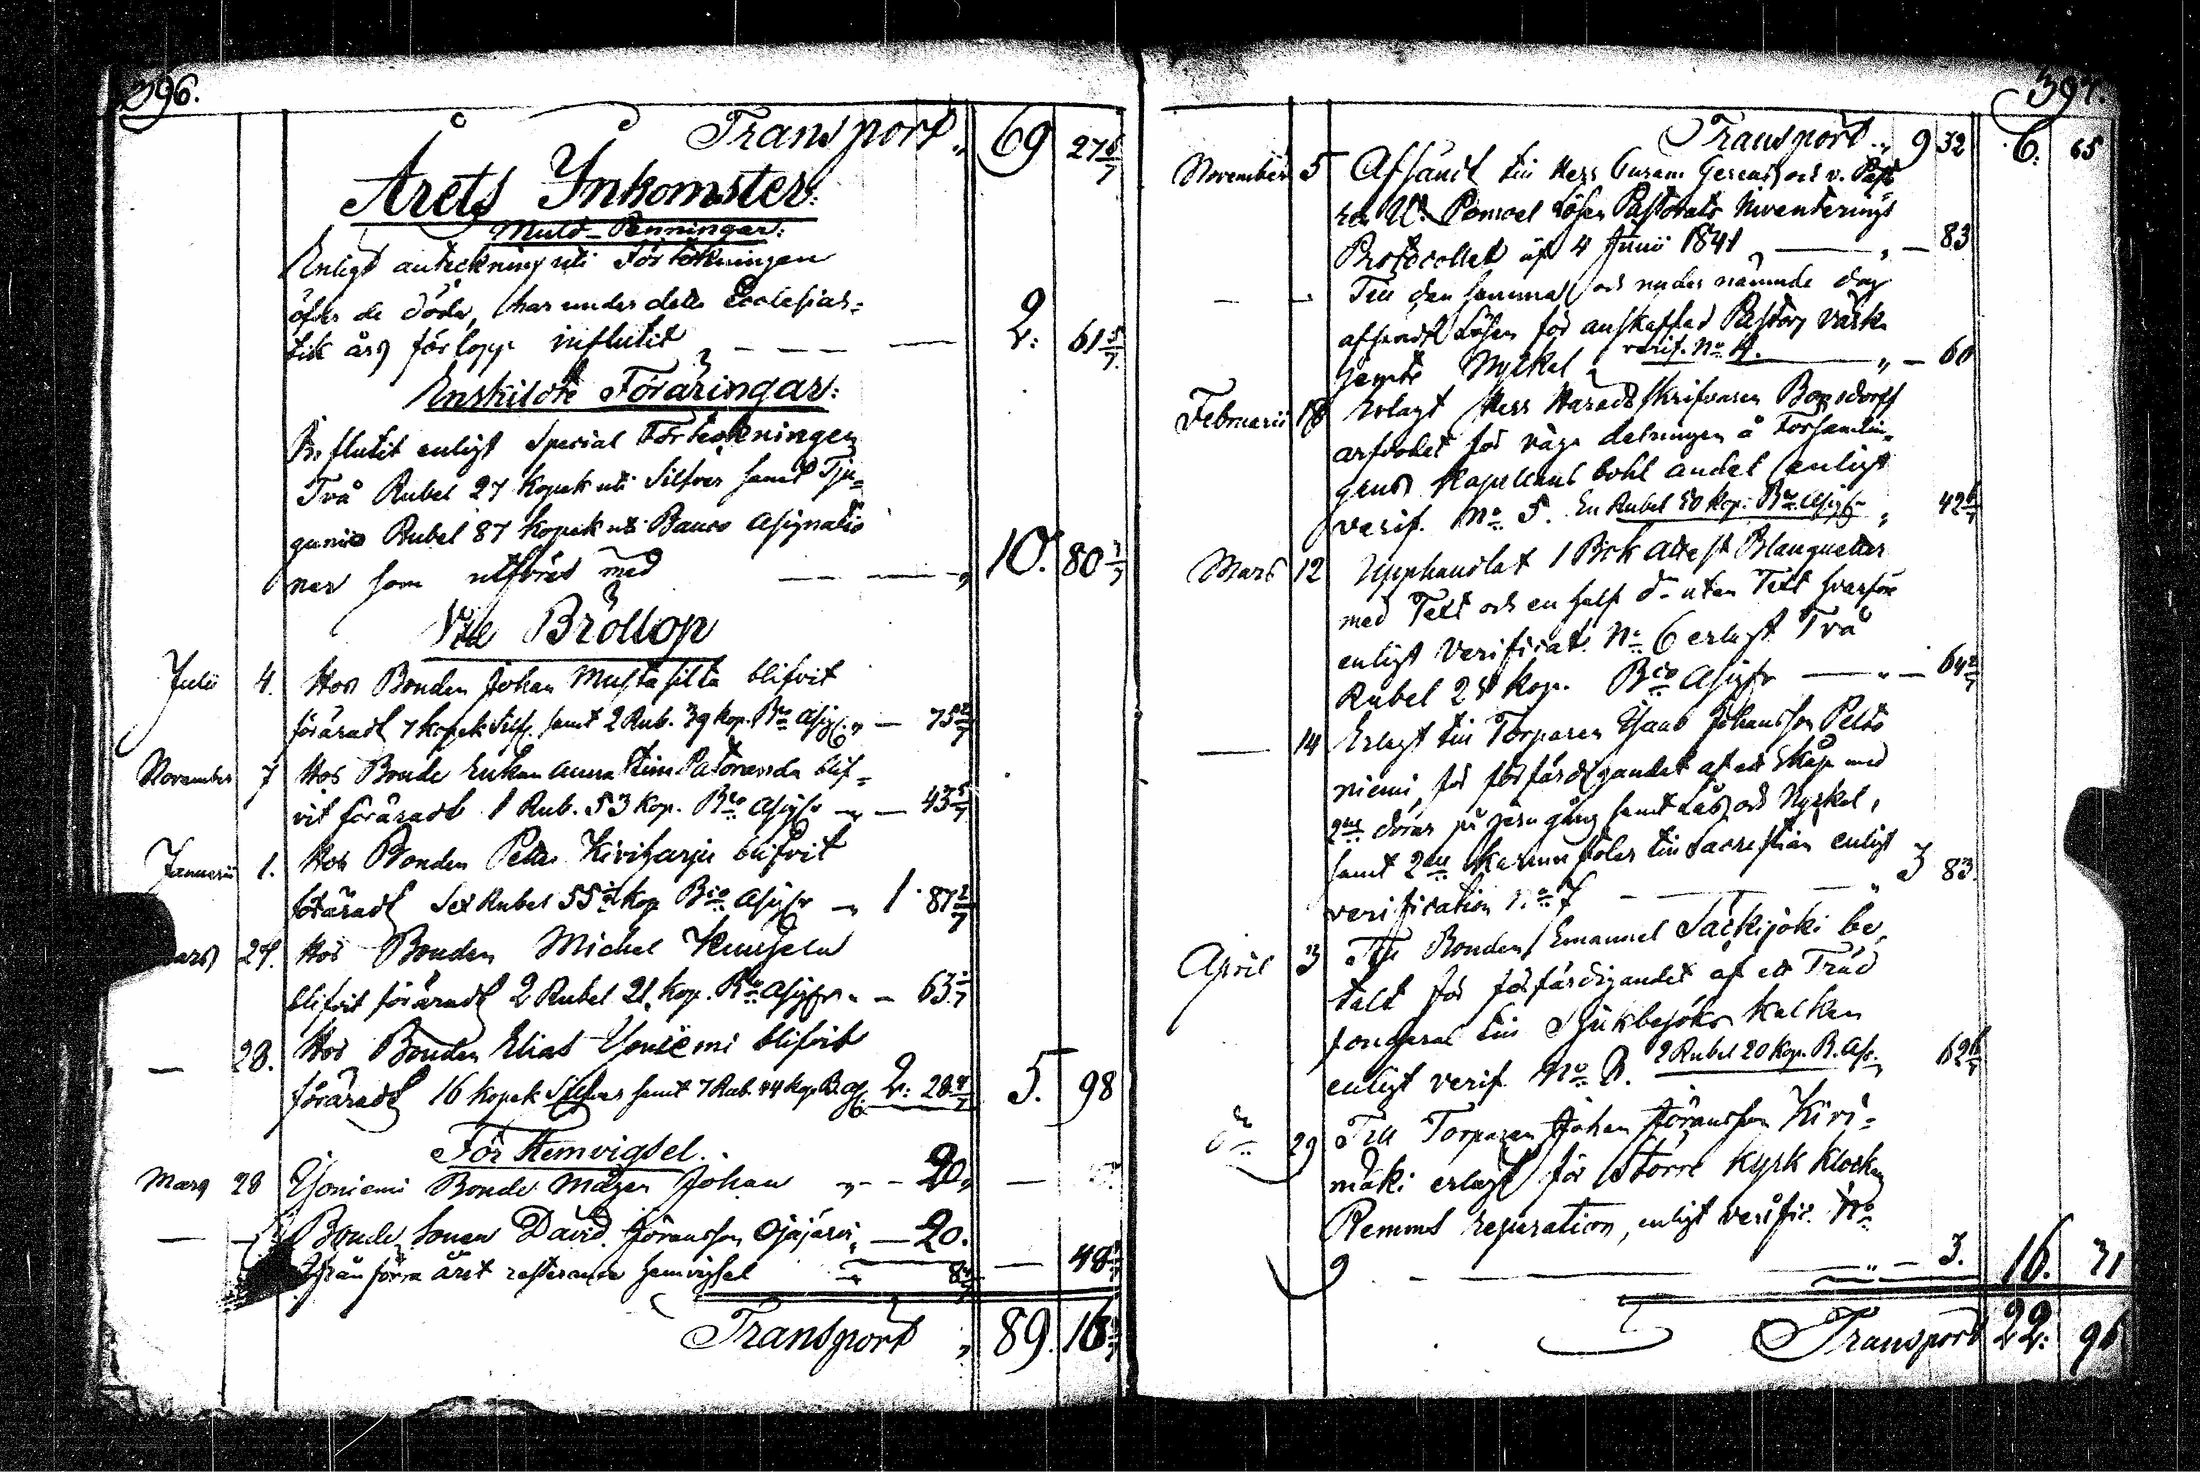 396.
Transport 69 27 6/7
Årets Inkomster:
Muld-Penningar:
Enligt anteckning uti Förtekningen
öfver de döda, har under detta Ecclesias-
tik års förlopp influtit 2: 61 5/7
Enskilde Föräringar:
Influtit enligt Special Förtekningen
Två Rubel 27 Kopek uti Silfver samt Tju-
gunio Rubel 87 Kopek uti Banco Assignatio
ner som utföres med 10. 80 3/7
Vid Bröllop
Julii 4. Hos Bonden Johan Mustasilta blifvit
föräradt 7 Kopek Silf. samt 2 Rub. 39 kop. Bco Assig. 75 2/7
November 7 Hos Bonde Enkan Anna blif-
vit föräradt 1 Rub. 53 Kop. Bco Assigr 43 5/7
Januarii 1. Hos Bonden Petter Kiviharju blifvit
föräradt Sex Rubel 55 kop Bco Assigr 1. 87 2/7
Mars 27. Hos Bonden Michel
blifvit föräradt 2 Rubel 21 Kop. Bco Assigr 63 1/7
— 28. Hos Bonden Elias Yoniemi blifvit
föräradt 16 Kopek Silfver samt 7 Rub. 44 Kop B. 2: 28 4/7 5. 98
För Hemvigsel.
Mars 28 Yoniemi Bonde Mågen Johan 20,
— Bonde Sonen David Jöransson Ojajärvi 20.
Ifrån förra året resterande hemvigsel 8 4/7 — 48 4/7
Transport 89. 16
397.
Transport 9 32 6. 65
November 5 Afsändt till Herr och v. Past
Lösen Pastorats Inventerings
Protocollet af 4 Junii 1841 — 83
— Till den samma och under nämnde dag
afsendt Lösen för anskaffad
jemte Nyckel verif. No 4. — 60
Februarii 18 Erlagt Herr Härads Skrifvaren Bonsdorff
arfvodet för väga delningen å Församlin-
gens Kapellans bohl andel enligt
verif. No 5. En Rubel 50 kop. Bco Assigr 42 6/7
Mars 12 Upphandlat 1 Bok Attest Blanquetter
med Text och en half do utan Text hvarföre
enligt Verificat. No 6 erlagt Två
Rubel 25 Kop. Bco Assigr — 64 2/7
— 14 Erlagt till Torparen Johansson Pelto
niemi, för förfärdigandet af ett Skåp med
2ne dörar på jern gång samt Lås och Nyckel,
samt 2ne till Sacrestian enligt
verification No 7 3 83.
April 3 Till Bonden Emanuel Säckijoki be-
talt för förfärdigandet af ett Träd
till Sjukbesöks Kalken
enligt verif. No 8. 2 Rubel 20 Kop. B. Ass. 62 6/7
do 29 Till Torparen Johan Jöransson Kivi-
mäki erlagt för Större Kyrk Klockan
Remmst reparation, enligt verific. No
9 3. 16. 31
Transport 22: 96